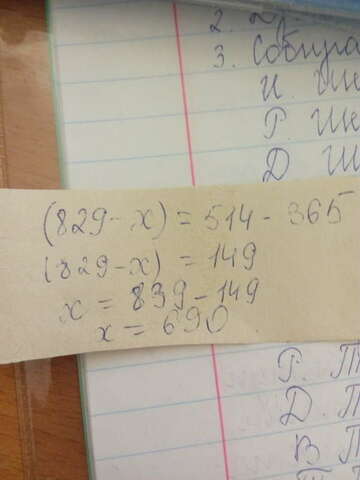 2.
3. Собира
И. Шк
Р. Шк
Д Ш
(829 - x) = 514 - 365
(829 - x) = 149
x = 839 - 149
x = 690
Р. Т
Д. Т
В П